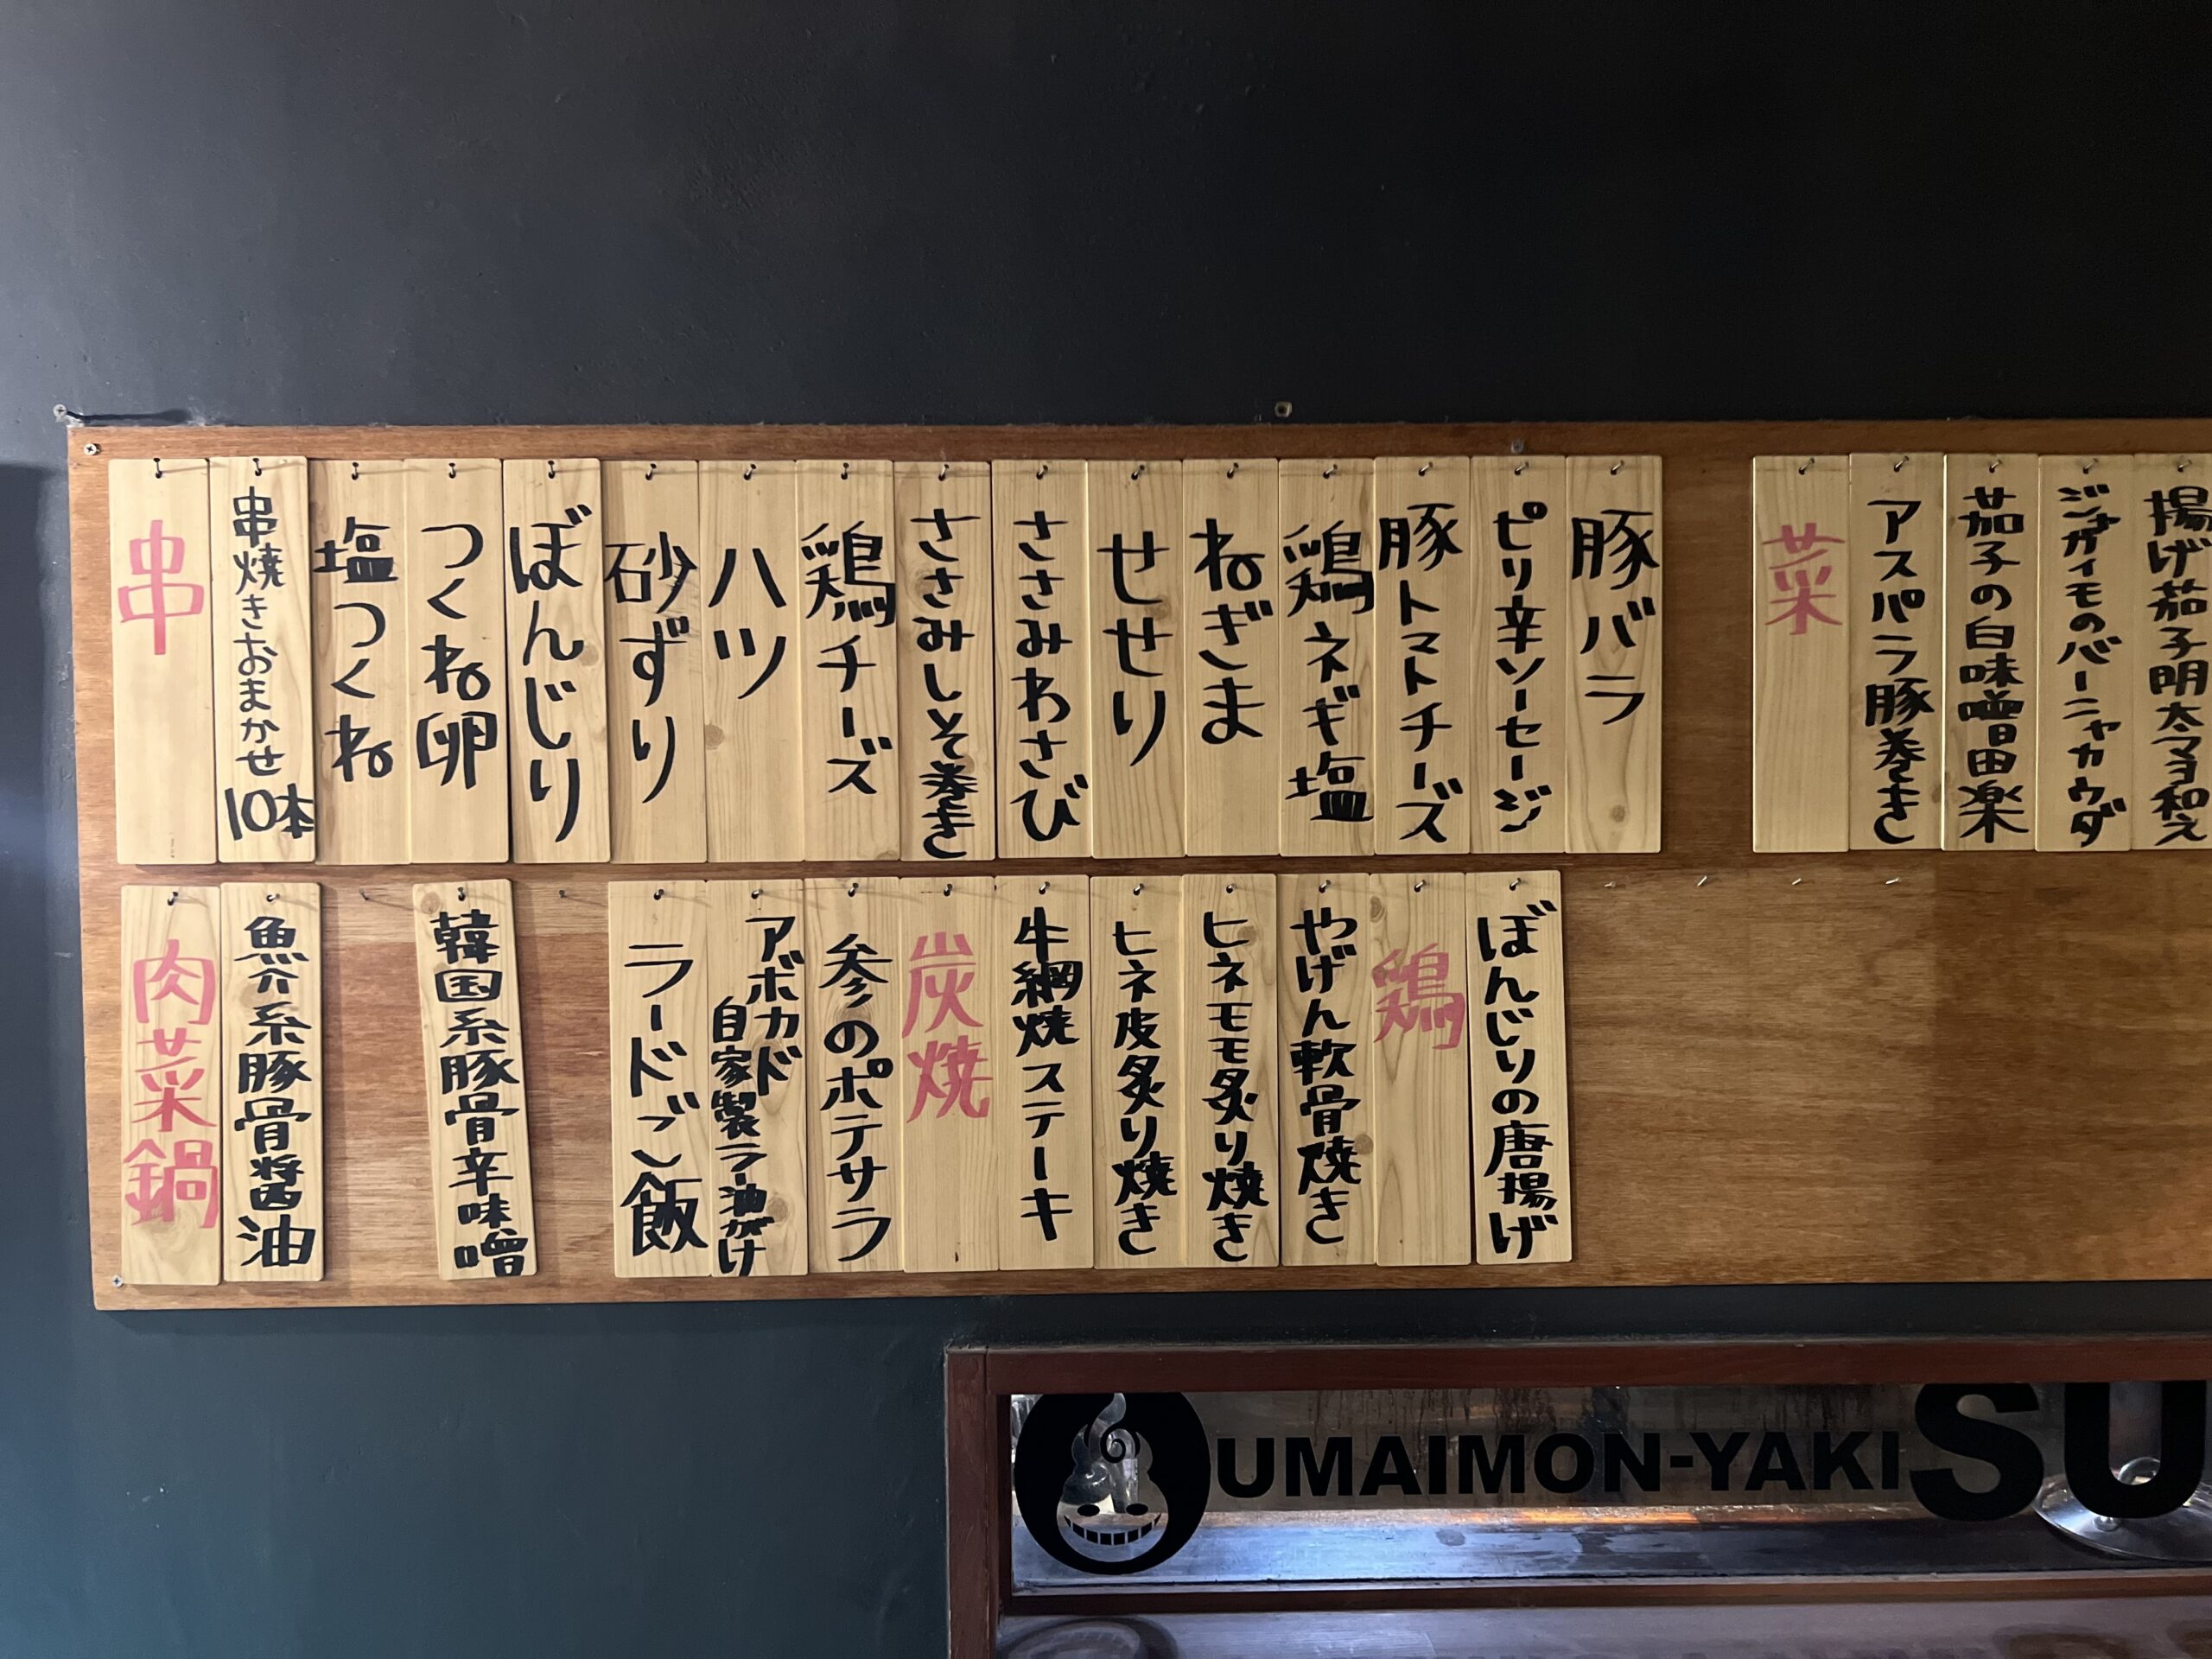 串
串焼きおまかせ10本
塩つくね
つくね卵
ぼんじり
砂ずり
ハツ
鶏チーズ
ささみしそ巻き
ささみわさび
せせり
ねぎま
鶏ネギ塩
豚トマトチーズ
ピリ辛ソーセージ
豚バラ
菜
アスパラ豚巻き
茄子の白味噌田楽
ジャガイモのバーニャカウダ
揚げ茄子明太マヨ和え
肉菜鍋
魚介系豚骨醤油
韓国系豚骨辛味噌
ラードご飯
アボカド
自家製ラー油がけ
参のポテサラ
炭焼
牛網焼ステーキ
ヒネ皮炙り焼き
ヒネモモ炙り焼き
やげん軟骨焼き
鶏
ぼんじりの唐揚げ
UMAIMON-YAKI SU